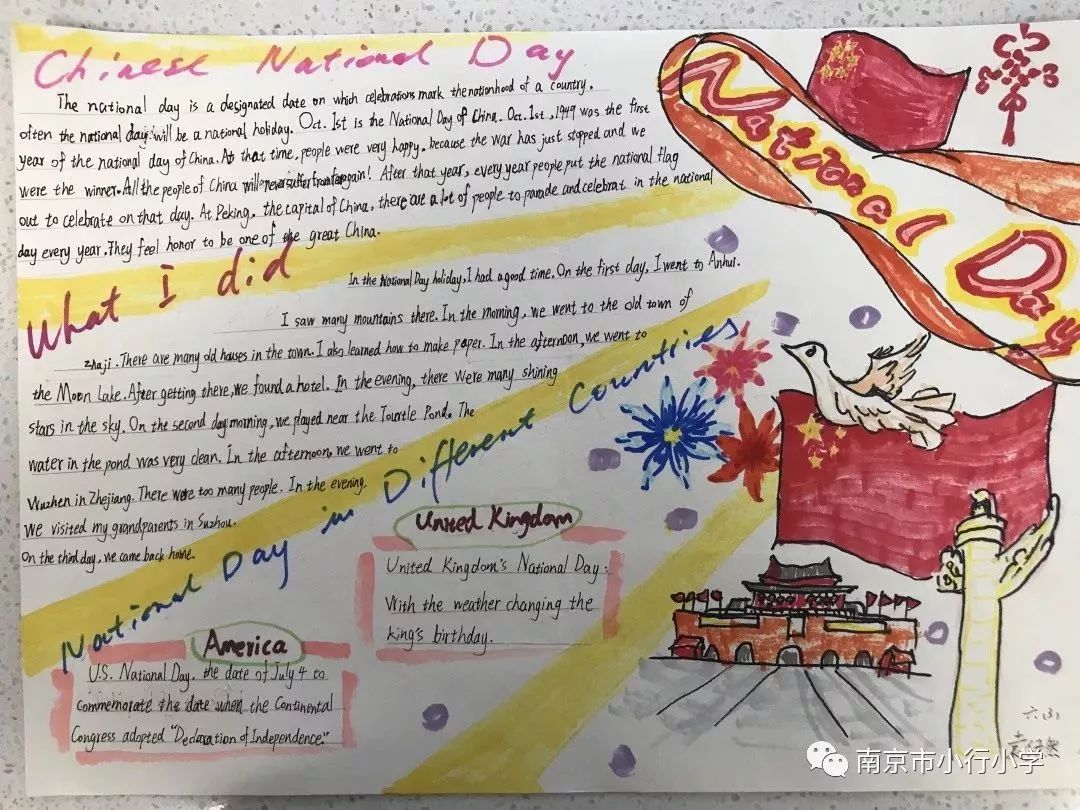 Chinese National Day
The national day is a designated date on which celebrations mark the nationhood of a country.
often the national day will be a national holiday. Oct. 1st is the National Day of China. Oct. 1st, 1949 was the first
year of the national day of China. At that time, people were very happy, because the war has just stopped and we
were the winner. All the people of China will never suffer from again! After that year, every year people put the national flag
out to celebrate on that day. At Peking, the capital of China, there are a lot of people to parade and celebrat in the national
day every year. They feel honor to be one of the great China.
What I did
In the National Day holiday, I had a good time. On the first day, I went to Anhui.
I saw many mountains there. In the morning, we went to the old town of
Zhaji. There are many old houses in the town. I also learned how to make paper. In the afternoon, we went to
the Moon Lake. After getting there, we found a hotel. In the evening, there were many shining
stars in the sky. On the second day morning, we played near the Tourtle Pond. The
water in the pond was very clean. In the afternoon, we went to
Wuzhen in Zhejiang. There were too many people. In the evening.
We visited my grandparents in Suzhou.
On the third day, we came back home.
National Day in Different Countries
America
U.S. National Day, the date of July 4 to
commemorate the date when the Continental
Congress adopted "Declaration of Independence."
United Kingdom
United Kingdom's National Day:
With the weather changing the
king's birthday.
National Day
六(3)
南京市小行小学